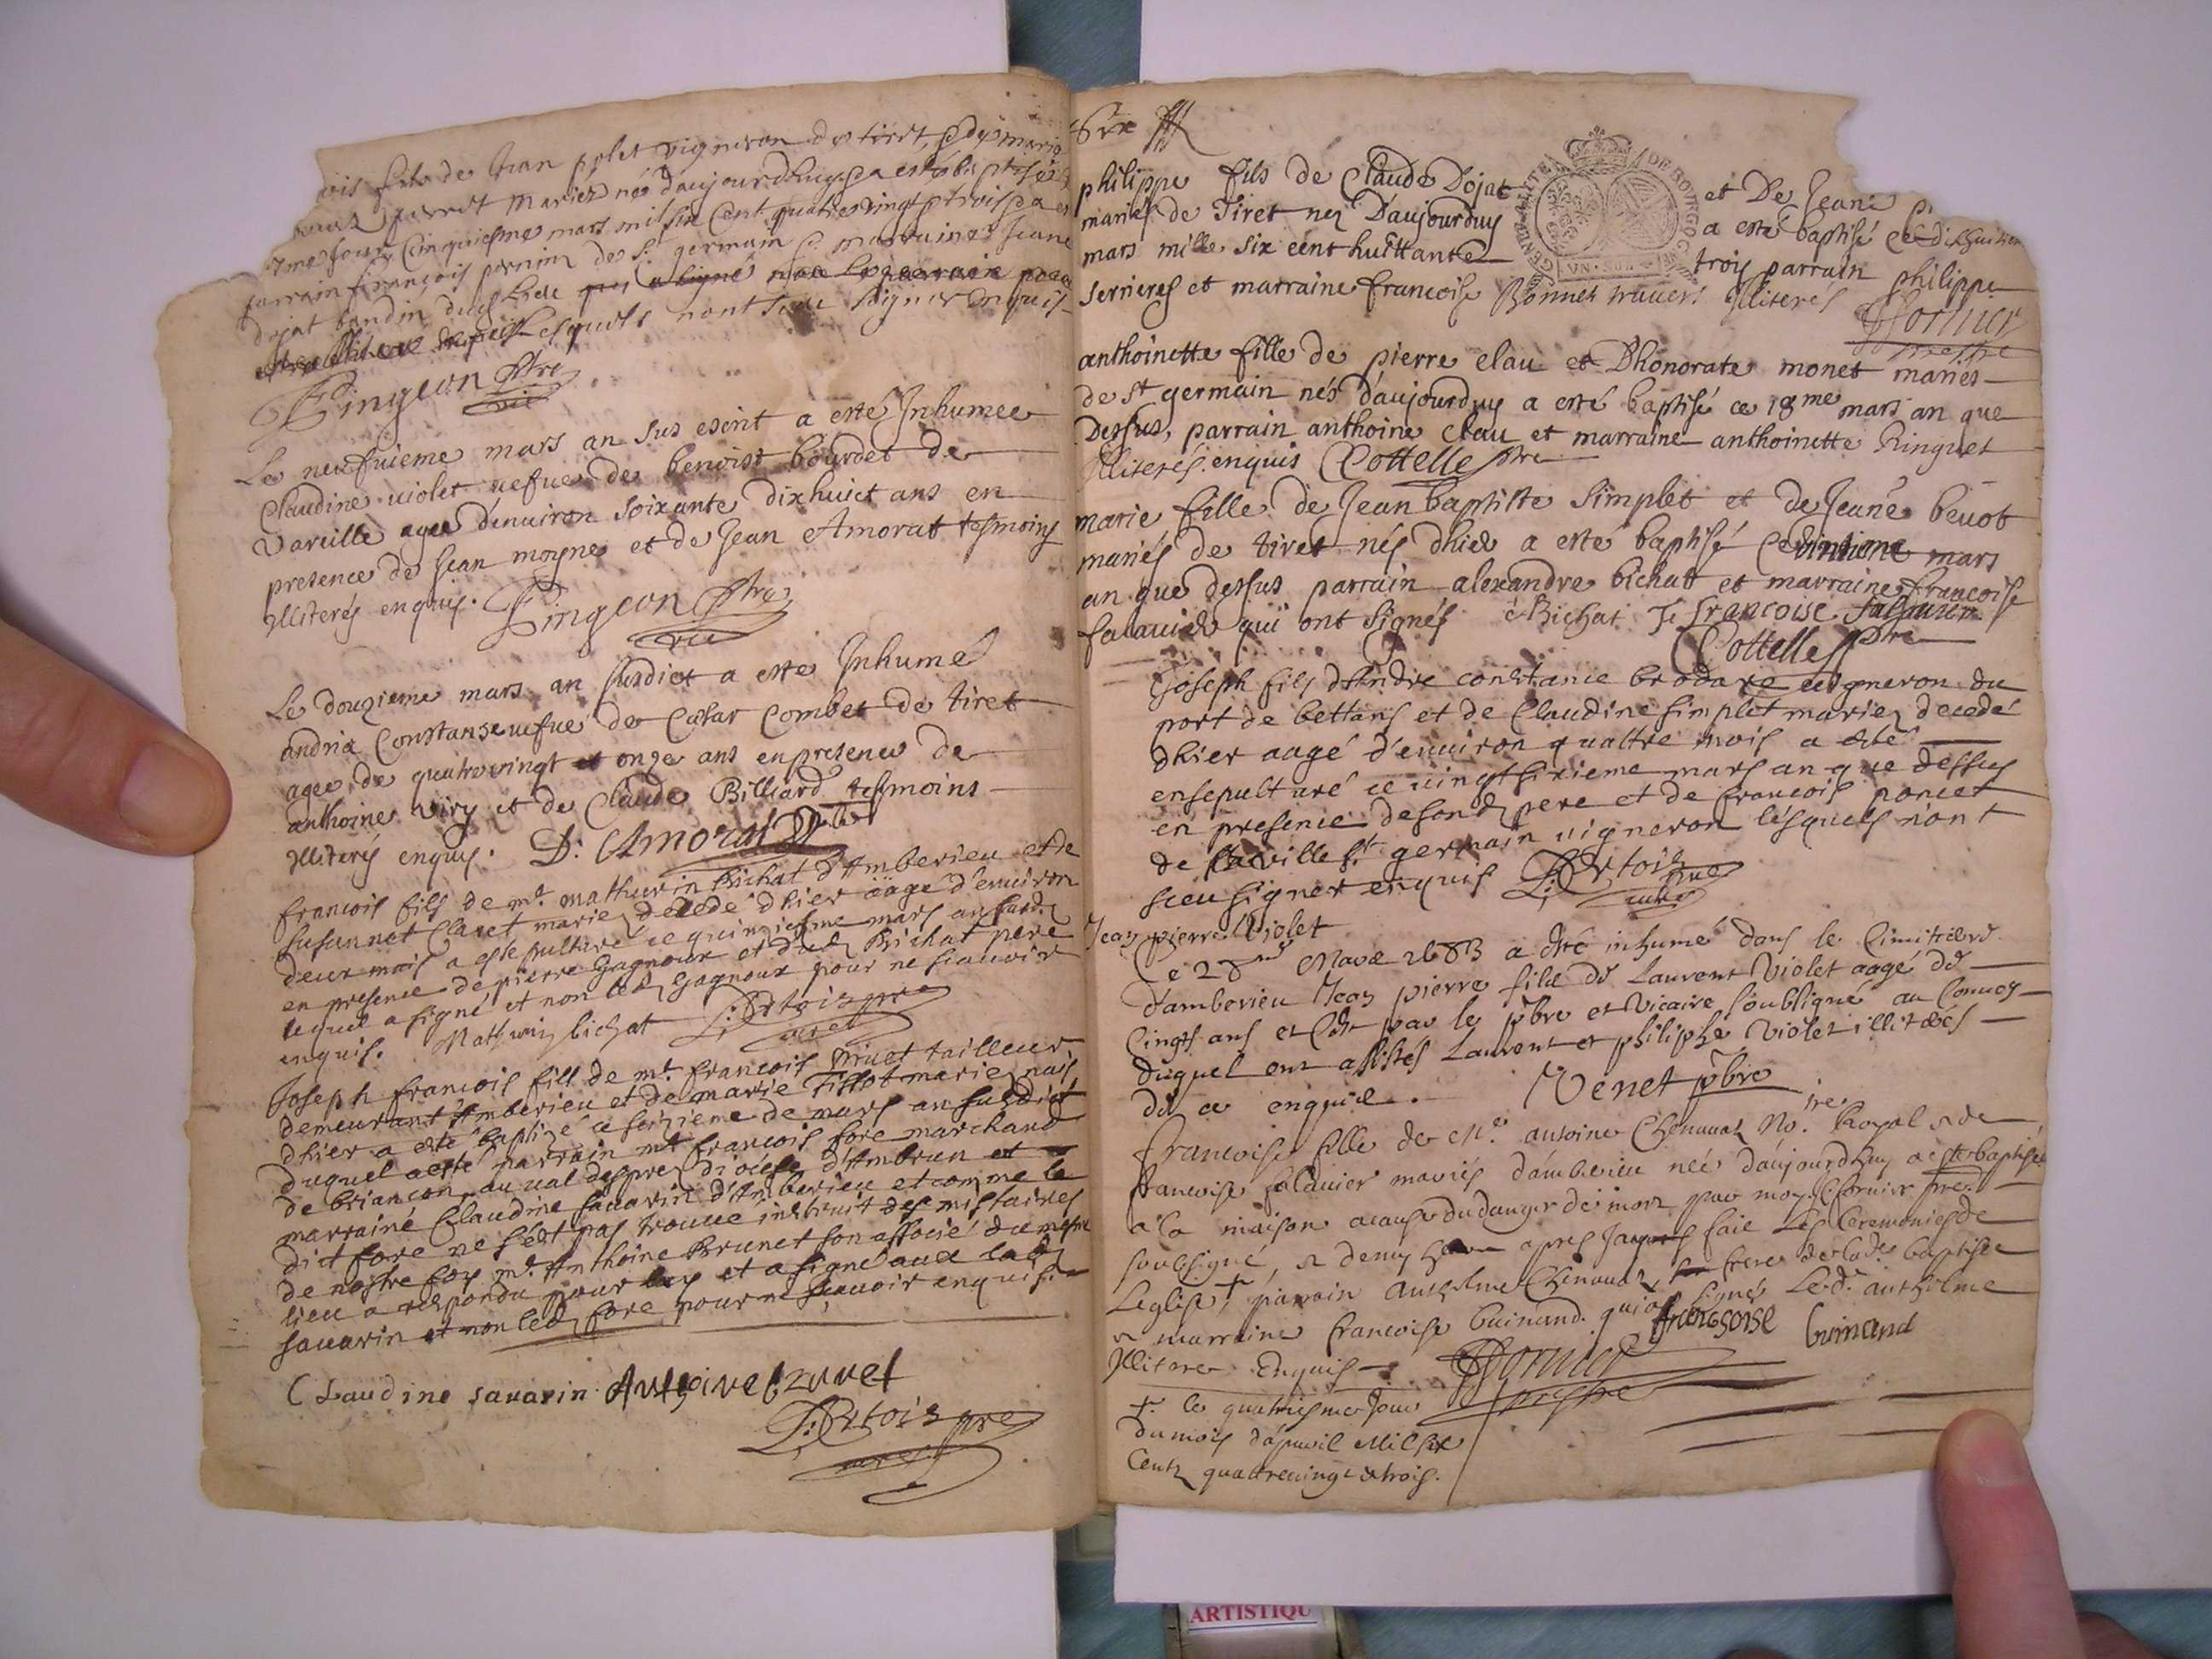 fils de Jean polet vigneron de tiret, et dy marie
mariez né daujourdhuy et a esté baptisé
cinquiesme mars mil six cent quatre vingt et trois et a
parrain françois pernin de St. germain et marraine Jeane
dojat
lesquels nont sceu signer enquis
Pingeon ptre
vic
Le neufuieme mars an sus escrit a esté Inhumee
Claudine uiolet uefue de benoist bourdet de
Vareille agee denuiron soixante dixhuict ans en
presence de Jean moyne et de Jean Amorat tesmoins
Illiterés enquis. Pingeon ptre
vic
Le douzieme mars an susdict a esté Inhumé
andria Constanse uefue de Cæsar Combet de tiret
agee de quatreuingt et onze ans en presence de
anthoine Viry et de Claude Billiard tesmoins
Illiterés enquis. D. Amorat
francois fils de mr. mathurin Bichat d'Amberieu et de
susannet Claret mariez decedé dhier aagé d'enuiron
deux mois a esté sepulturé ce quinziesme mars an susdt
en presence de pierre Gagnoux et dud Bichat pere
lequel a signé et non led Gagnoux pour ne scauoir
enquis. Mathurin bichat
Joseph francois fils de mr. francois Priuet tailleur
demeurant Amberieu et de marie Tissot mariez nais
dhier a esté baptizé ce seizieme de mars an susdict
duquel a esté parrain mr francois fore marchand
de briancon au ual desprez diocese d'Ambrun et
marraine Claudine sauarin d'Amberieu et comme le
dict fore ne s'est pas trouué instruit des mistaires
de nostre foy mr. Anthoine Brunet son associé du mesme
lieu a respondu pour luy et a signé auec lad
sauarin et non led fore pour ne scauoir enquis.
Claudine sauarin Antoine brunet
philippe fils de Claude Dojat et De Jeane
mariés de Tiret nez D'aujourduy a esté baptisé ce dixhuitiem
mars mille six cent huittante trois parrain philippe
serrieres et marraine francoise Bonnet trauers Illiterés
F fornier
prestre
GENERALITE DE BOURGOGNE
VN SOL
anthoinette fille de pierre clau et Dhonorate monet mariés
de St germain nés d'aujourduy a esté baptisé ce 18me mars an que
Dessus, parrain anthoine clau et marraine anthoinette Ringuet
Illiterés enquis Cottelle ptre
marie fille de Jean baptiste simplet et de Jeane beuot
mariés de tiret nés dhier a esté baptisé ce mars
an que dessus parrain alexandre bichatt et marraine francoise
falauier qui ont signés A Bichat F francoise falauier
Cottelle ptre
Joseph fils d'Andre constance brodare uigneron du
port de bettans et de Claudine simplet mariez decedé
dhier aagé d'enuiron quattre mois a esté
ensepulturé ce uingt sixieme mars an que dessus
en presence de sond pere et de francois poncet
de Vareille St germain uigneron lesquels n'ont
sceu signer enquis
Jean pierre Violet
Ce 28me Mars 1683 a esté inhumé dans le Cimitiere
d'amberieu Jean pierre fils de Laurent Violet aagé de
Cingts ans et Cest par le pbre et Vicaire soubsigné au Conuoy
duquel ont assistés Laurent et philiphe Violet illiterés
de ce enquis. Venet pbre
francoise fille de Me. antoine Chenauaz No.ire Royal & de
francoise falauier mariés d'amberieu neé daujourdhuy a esté baptisée
a la maison a cause du danger de mort par moy fornier pre.
soubsigné, & apres Jauois fait les Ceremonies de
Leglise + parrain antelme Chenauaz frere de lad. baptisee
& marraine francoise Guinand qui a signé Le d. anthelme
francsoise Guinand
Illitere Enquis F fornier
prestre
+ le quatriesme Jour
du mois d'apuril Mil six
Centz quattreuingt & trois.
ARTISTIQU